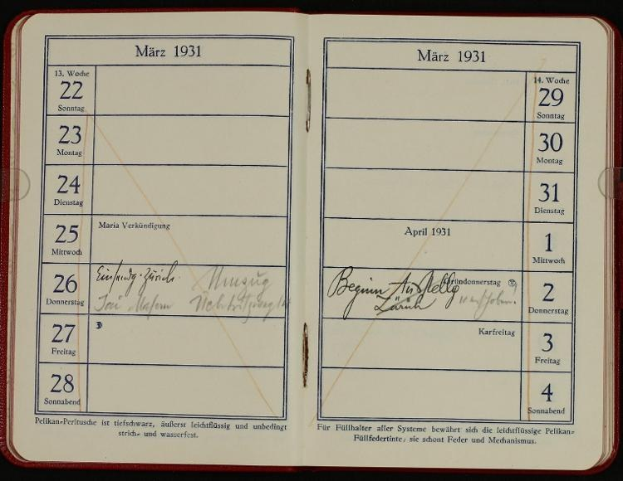 März 1931
13. Woche
22
Sonntag
23
Montag
24
Dienstag
25
Mittwoch
Maria Verkündigung
26
Donnerstag
Einsendg. Zürich Umzug
27
Freitag
28
Sonnabend
Pelikan=Perltusche ist tiefschwarz, äußerst leichtflüssig und unbedingt
strich= und wasserfest.
März 1931
14. Woche
29
Sonntag
30
Montag
31
Dienstag
April 1931
1
Mittwoch
Gründonnerstag
2
Donnerstag
Beginn Ausstellg
Zürich
Karfreitag
3
Freitag
4
Sonnabend
Für Füllhalter aller Systeme bewährt sich die leichtflüssige Pelikan=
Füllfedertinte, sie schont Feder und Mechanismus.